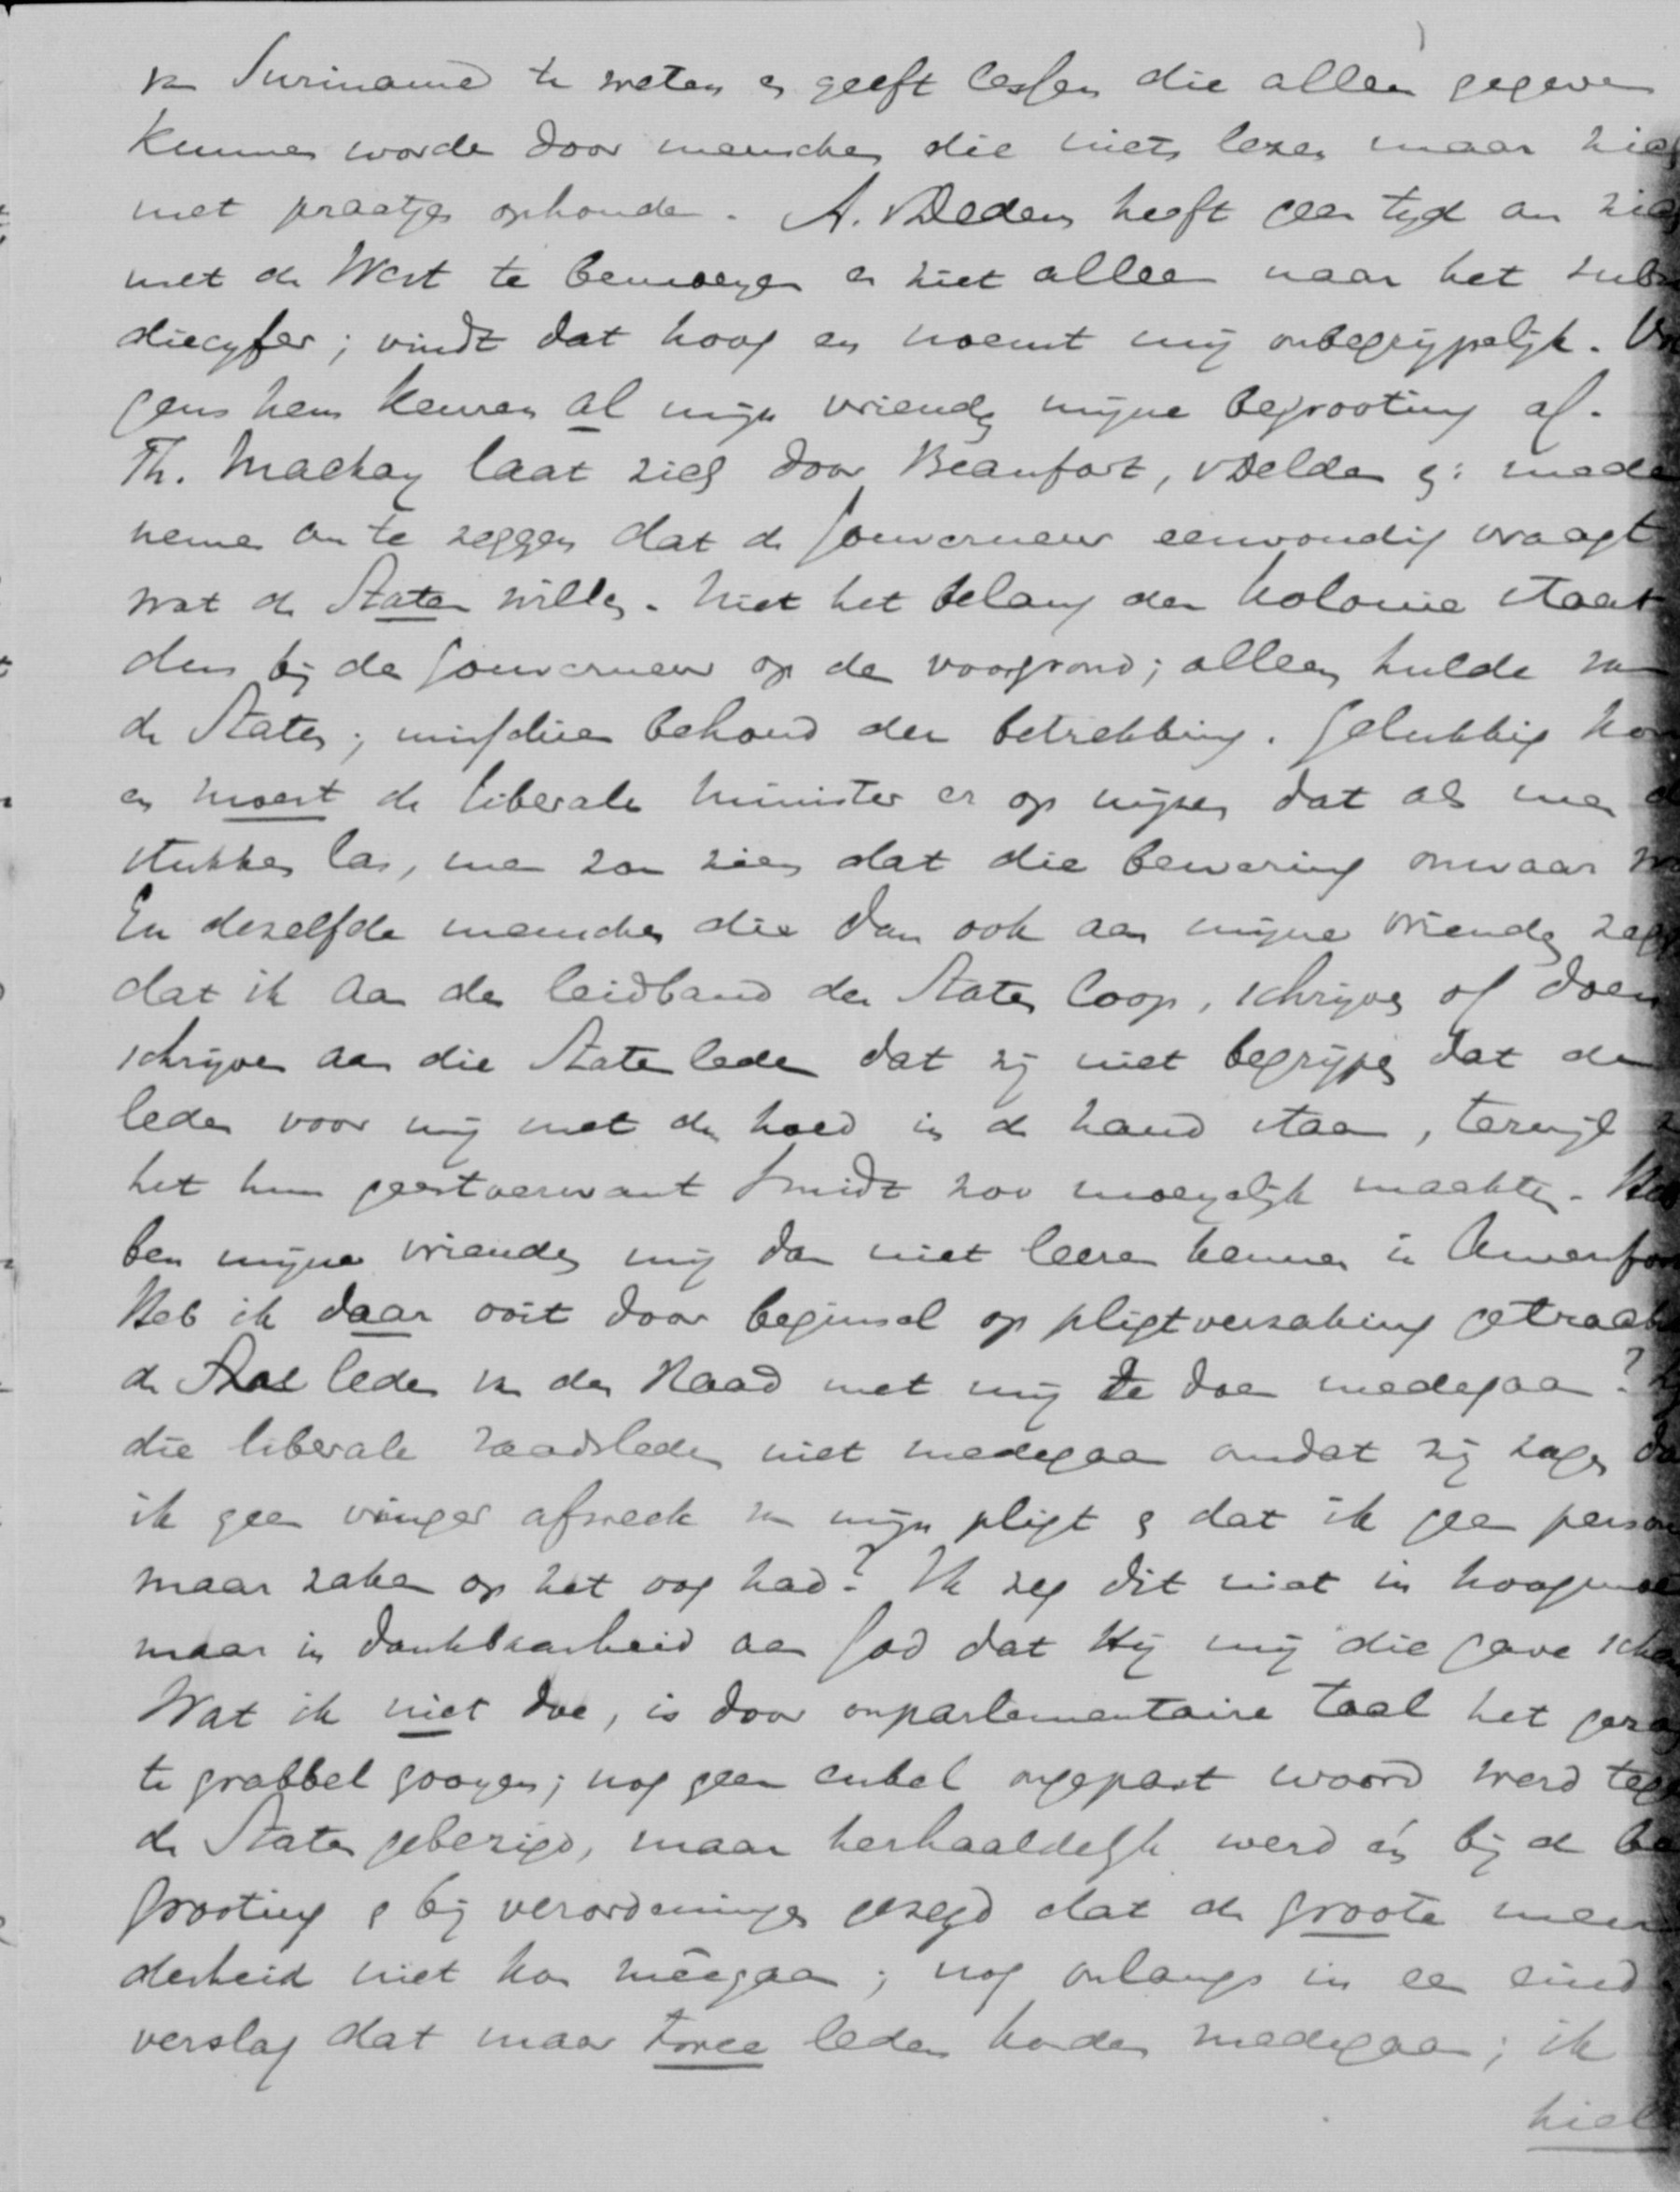 van Suriname te weten en geeft lessen die alleen gegeven
kunnen worden door menschen die niets lezen maar zich
met praatjes ophouden. A. v Dedem heeft geen tyd om zich
met de West te bemoeyen en ziet alleen naar het subsi
diecyfer; vindt dat hoog en noemt mij onbegrijpelijk. Vol
gens hem keuren al mijn vrienden mijne begrooting af.
Th. Mackay laat zich door Beaufort, v Delden en: mede
nemen om te zeggen dat de Gouverneur eenvoudig vraagt
wat de Staten willen. Niet het belang der kolonie staat
dus bij den Gouverneur op den voorgrond; alleen hulde van
de Staten; misschien behoud der betrekking. Gelukkig kon
en moest de liberale minister er op wijzen dat als men de
stukken las, men zou zien dat die bewering onwaar was
En dezelfde menschen die dan ook aan mijne vrienden zeggen
dat ik aan den leidband der Staten loop, schrijven of doen
schrijven aan die Statenleden dat zij niet begrijpen dat de
leden voor mij met den hoed in de hand staan, terwijl zij
het hun geestverwant Smidt zoo moeyelijk maakten. Heb
ben mijne vrienden mij dan niet leeren kennen in Amersfoort
Heb ik daar ooit door beginsel op pligtverzaking getracht
de leden van den Raad met mij te doen medegaan?
die liberale raadsleden niet medegaan omdat zij zagen dat
ik geen vinger afweek van mijn pligt en dat ik geen personen
maar zaken op het oog had? Ik zeg dit niet in hoogmoed
maar in dankbaarheid aan God dat Hij mij die gave schonk
Wat ik niet doe, is door onparlementaire taal het gezag
te grabbel gooyen; nog geen enkel ongepast woord werd tegen
de Staten gebezigd, maar herhaaldelijk werd én bij de be
grooting en bij verordeningen gezegd dat de groote meer
derheid niet kon méégaan; nog onlangs in een eind
verslag dat maar twee leden konden medegaan; ik
hield